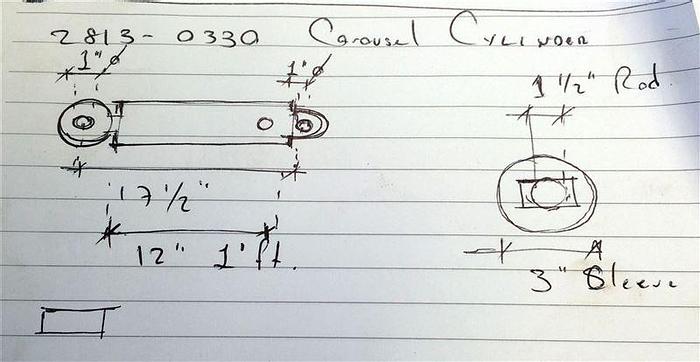 2813-0330 Carousel Cylinder
1"ø
1"ø
1 1/2" Rod
17 1/2"
12" 1'ft.
3" Sleeve